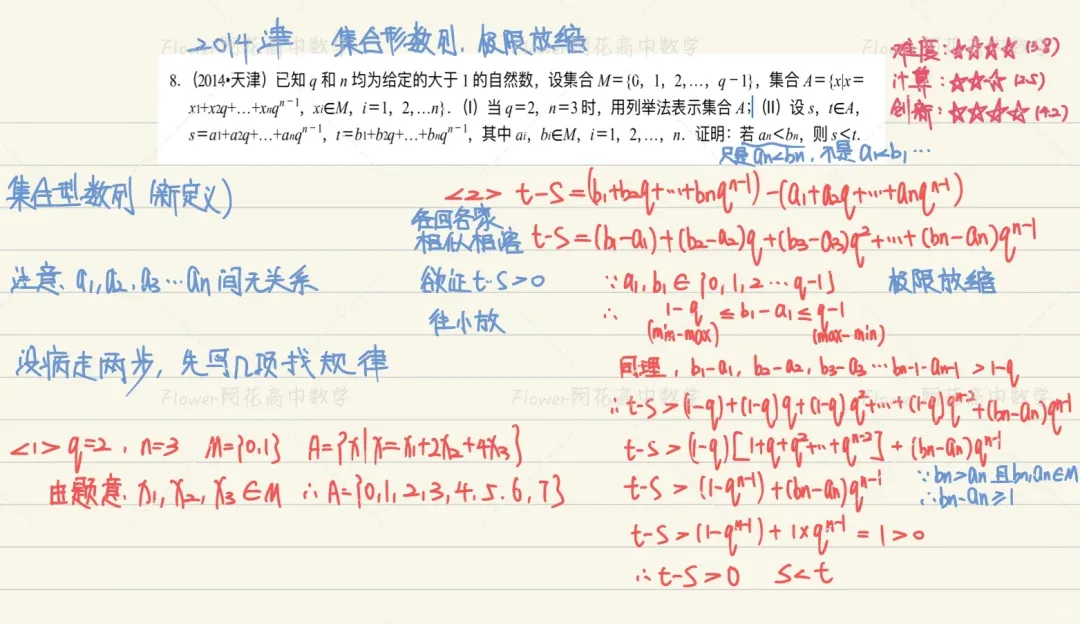 2014津 集合形数列.极限放缩
难度:☆☆☆☆(3.8)
计算:☆☆☆(2.5)
创新:☆☆☆☆(4.2)
8.(2014•天津)已知 q 和 n 均为给定的大于 1 的自然数,设集合 M={0,1,2,…,q-1},集合 A={x|x=
x₁+x₂q+…+xₙqⁿ⁻¹,xᵢ∈M,i=1,2,…n}.(Ⅰ)当 q=2,n=3 时,用列举法表示集合 A;(Ⅱ)设 s,t∈A,
s=a₁+a₂q+…+aₙqⁿ⁻¹,t=b₁+b₂q+…+bₙqⁿ⁻¹,其中 aᵢ,bᵢ∈M,i=1,2,…,n.证明:若 aₙ<bₙ,则 s<t.
只是an<bn,不是a1<b1…
集合型数列(新定义)
注意、a1,a2,a3…an间无关系
没病走两步,先写几项找规律
<1> q=2,n=3 M={0,1} A={x|x=x1+2x2+4x3}
由题意,x1,x2,x3∈M ∴A={0,1,2,3,4,5,6,7}
<2> t-S=(b1+b2q+…+bnqⁿ⁻¹)-(a1+a2q+…+anqⁿ⁻¹)
各回各家
相似相溶
t-S=(b1-a1)+(b2-a2)q+(b3-a3)q²+…+(bn-an)qⁿ⁻¹
欲证t-S>0
往小放
∵a1,b1∈{0,1,2…q-1}
极限放缩
∴ 1-q≤b1-a1≤q-1
(min-max) (max-min)
同理,b1-a1,b2-a2,b3-a3…bn-1-an-1>1-q
∴t-S>(1-q)+(1-q)q+(1-q)q²+…+(1-q)qⁿ⁻²+(bn-an)qⁿ⁻¹
t-S>(1-q)[1+q+q²+…+qⁿ⁻²]+(bn-an)qⁿ⁻¹
t-S>(1-qⁿ⁻¹)+(bn-an)qⁿ⁻¹
∵bn>an且bn,an∈M
∴bn-an≥1
t-S>(1-qⁿ⁻¹)+1×qⁿ⁻¹=1>0
∴t-S>0 S<t